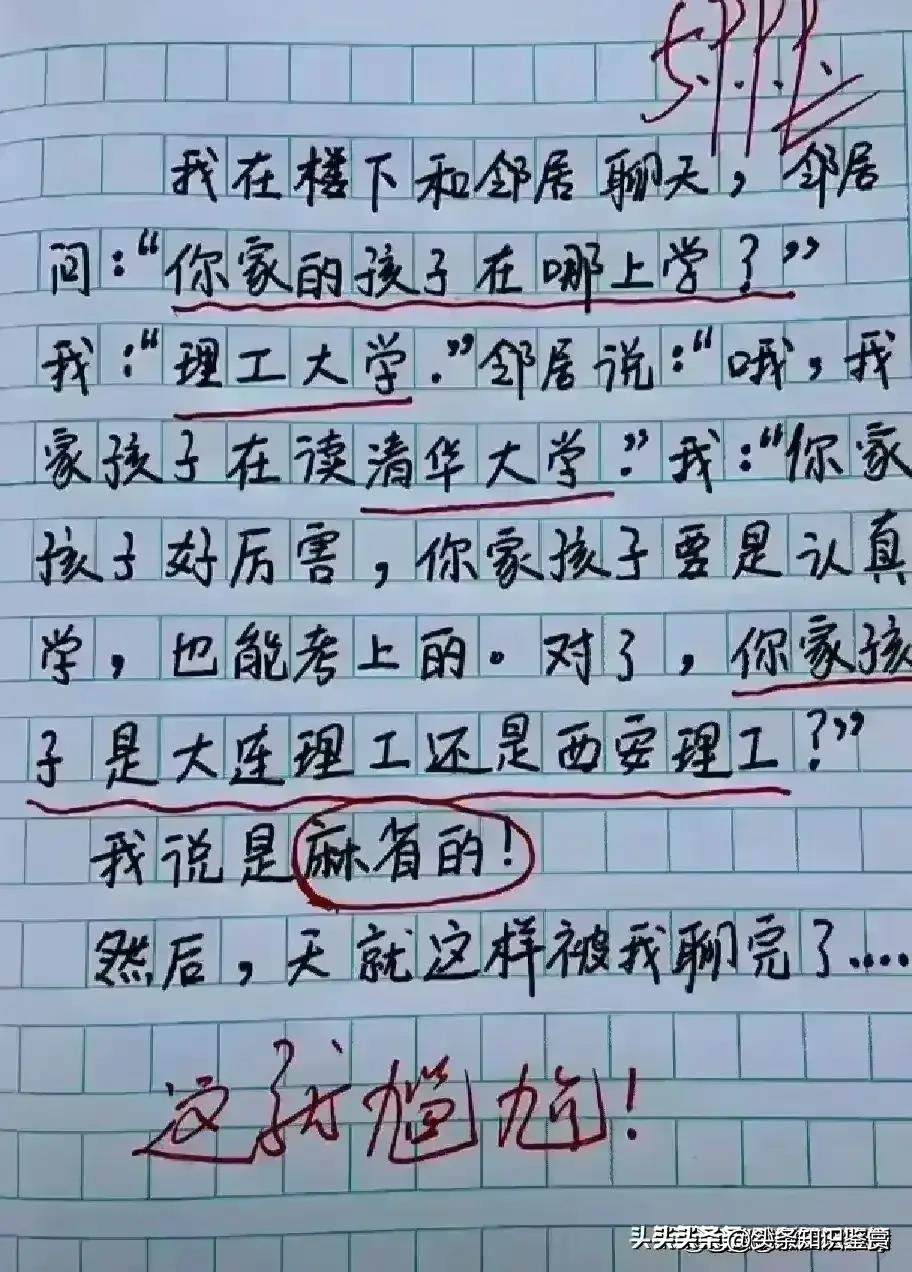 我在楼下和邻居聊天，邻居
问：“你家的孩子在哪上学？”
我：“理工大学.”邻居说：“哦，我
家孩子在读清华大学.”我：“你家
孩子好厉害，你家孩子要是认真
学，也能考上的。对了，你家孩
子是大连理工还是西安理工？”
我说是麻省的！
然后，天就这样被我聊完了....
这就尴尬！